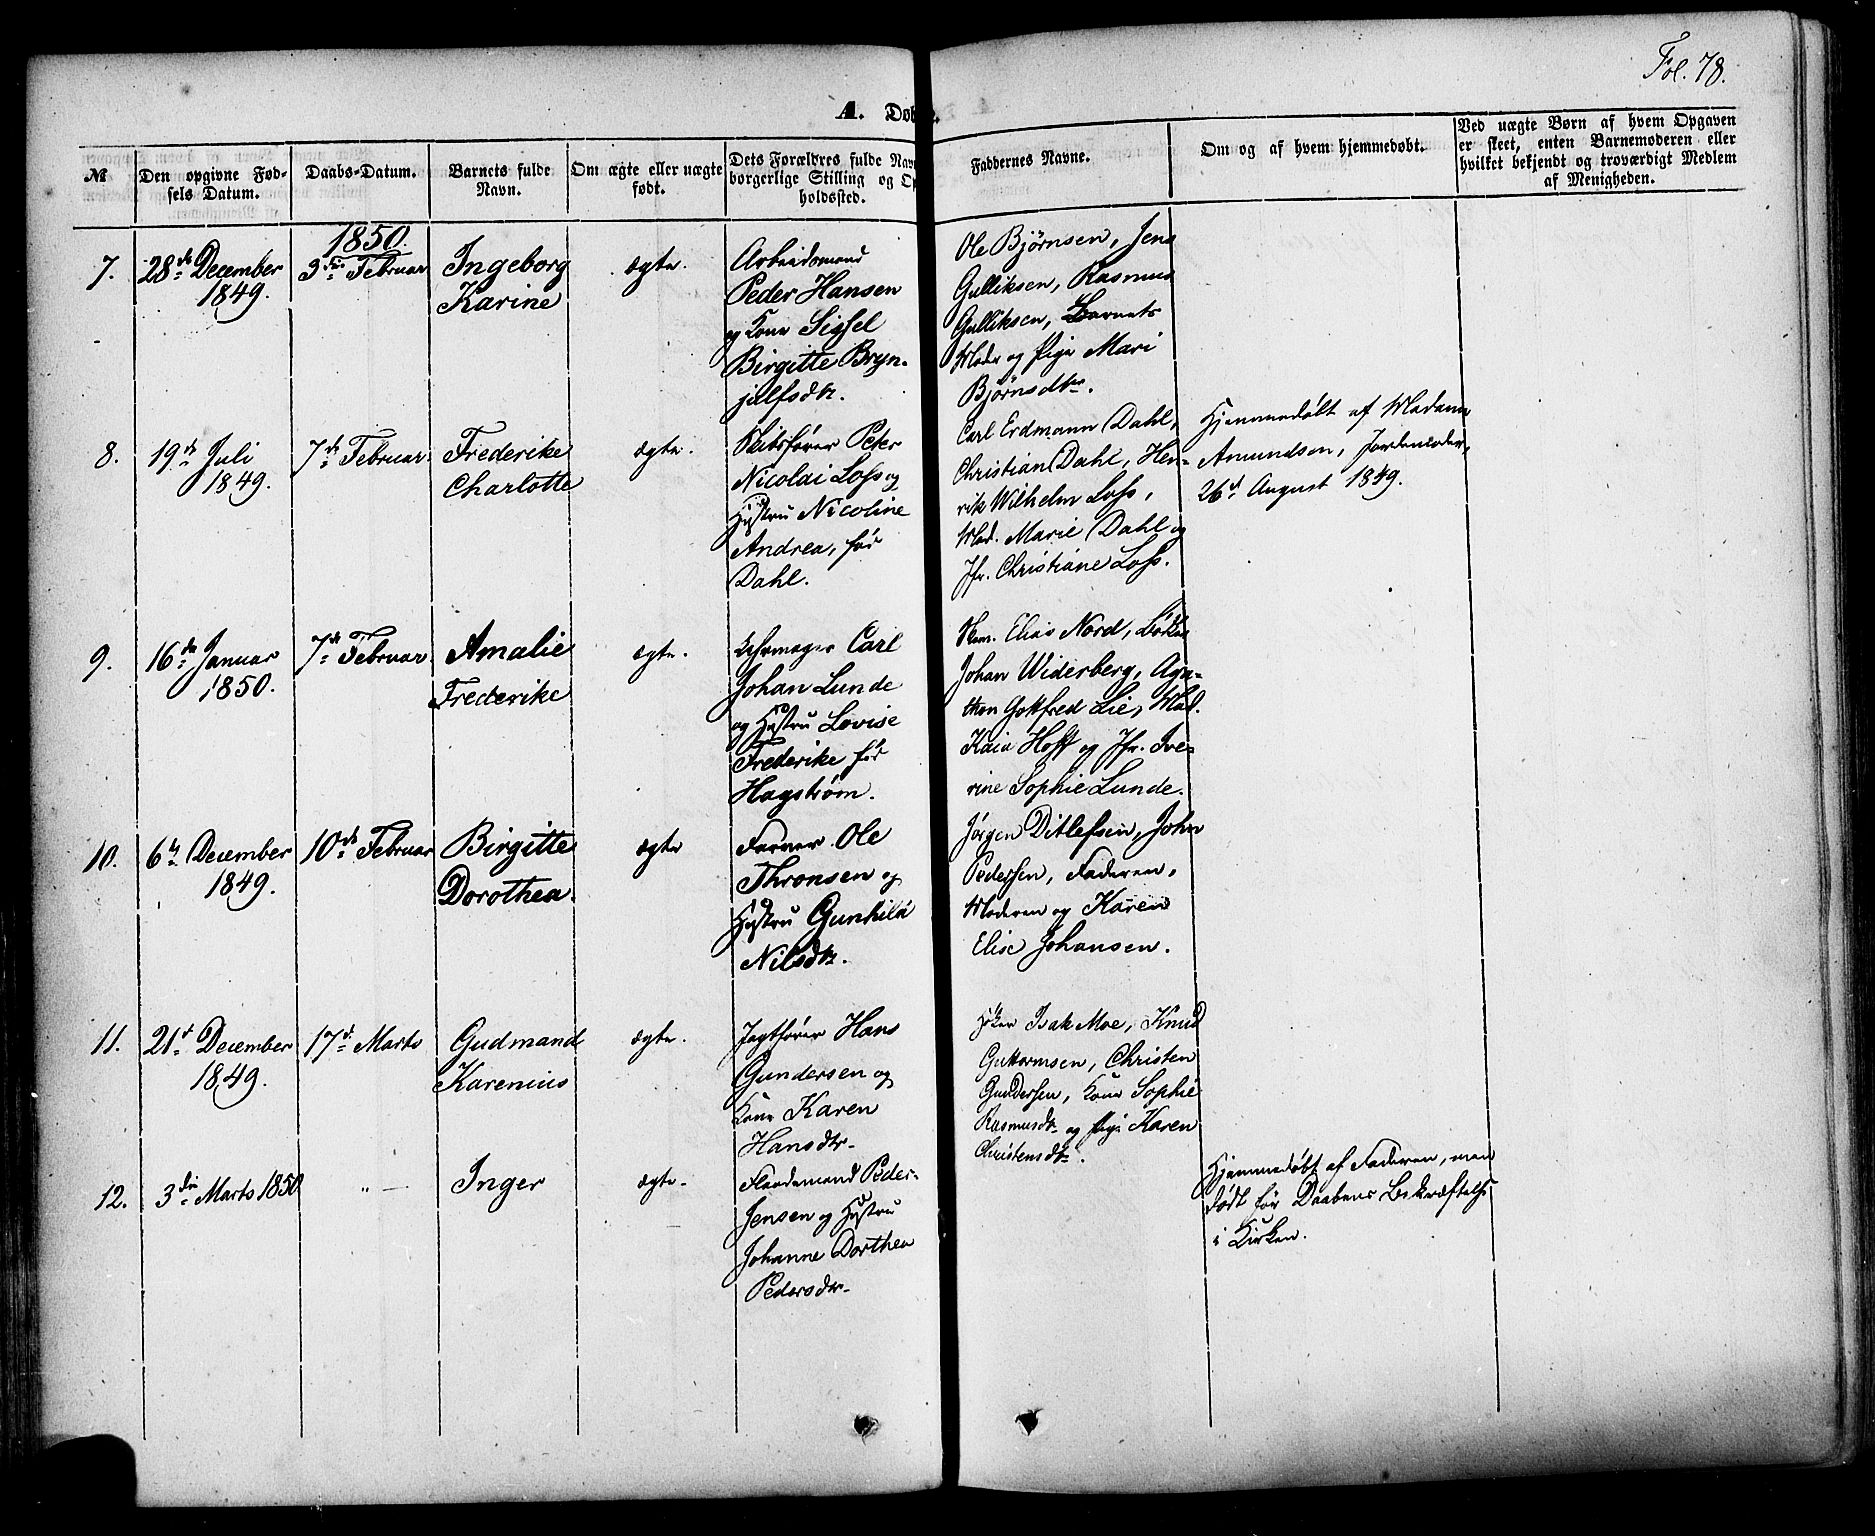 Fol. 78.
A. Døbte.
№
Den opgivne Fød-
sels Datum.
Daabs-Datum.
Barnets fulde
Navn.
Om ægte eller uægte
født.
Dets Forældres fulde Nav
borgerlige Stilling og Op
holdssted.
Faddernes Navne.
Om og af hvem hjemmedøbt.
Ved uægte Børn af hvem Opgaven
er skeet, enten Barnemoderen eller
hvilket bekjendt og troværdigt Medlem
af Menigheden.
1850.
7.
28de December
1849.
3die Februar
Ingeborg
Karine
ægte.
Arbeidsmand
Peder Hansen
og Kone Sissel
Birgitte Bryn-
julfsdtr.
Ole Bjørnsen, Jens
Gulliksen, Rasmus
Gulliksen, Barnets
Moder og Pige Mari
Bjørnsdtr.
8.
19de Juli
1849.
7de Februar.
Frederike
Charlotte
ægte.
Skibsfører Peter
Nicolai Loss og
Hustru Nicoline
Andrea, før
Dahl.
Carl Erdmann Dahl,
Christian Dahl, Hen-
rik Wilhelm Loss,
Mad. Marie Dahl og
Jfr. Christiane Loss.
Hjemmedøbt af Madame
Amundsen, Jordemoder,
26de August 1849.
9.
16de Januar
1850.
7de Februar
Amalie
Frederike
ægte.
Uhrmager Carl
Johan Lunde
og Hustru Lovise
Frederike før
Hagstrøm.
Elias Nord,
Johan Widerberg, Aga-
thon Gottfred Lie, Mad.
Kaia Hoff og Jfr. Ive-
rine Sophie Lunde.
10.
6te December
1849.
10de Februar
Birgitte
Dorothea.
ægte
Farver Ole
Thronsen og
Hustru Gunhild
Nilsdtr.
Jørgen Ditlefsen, John
Pedersen, Faderen,
Moderen og Karen
Elise Johansen.
11.
21de December
1849.
17de Marts
Gudmand
Karenius
ægte.
Jagtfører Hans
Gundersen og
Kone Karen
Hansdtr.
Høker Isak Moe, Knud
Guttormsen, Christen
Gundersen, Kone Sophie
Rasmusdtr og Pige Karen
Christensdtr.
12.
3die Marts 1850
" —
Inger
ægte.
Peder
Jensen og Hustru
Johanne Dorthea
Pedersdtr.
Hjemmedøbt af Faderen, men
død før Daabens Bekræftelse
i Kirken.